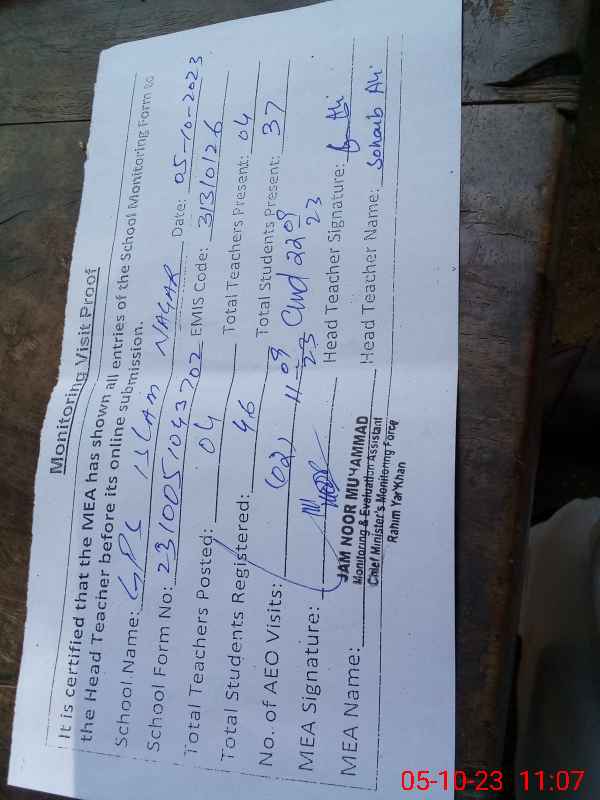 Monitoring Visit Proof
It is certified that the MEA has shown all entries of the School Monitoring Form to
the Head Teacher before its online submission.
School Name: GPS ISLAM NAGAR Date: 05-10-2023
School Form No: 2310051043702 EMIS Code: 31310126
Total Teachers Posted: 04 Total Teachers Present: 04
Total Students Registered: 46 Total Students Present: 37
No. of AEO Visits: (02) 11-09-23 and 22-09-23
MEA Signature: Head Teacher Signature:
MEA Name: Head Teacher Name: Sohaib Ali
JAM NOOR MUHAMMAD
Monitoring & Evaluation Assistant
Chief Minister's Monitoring Force
Rahim Yar Khan
05-10-23 11:07